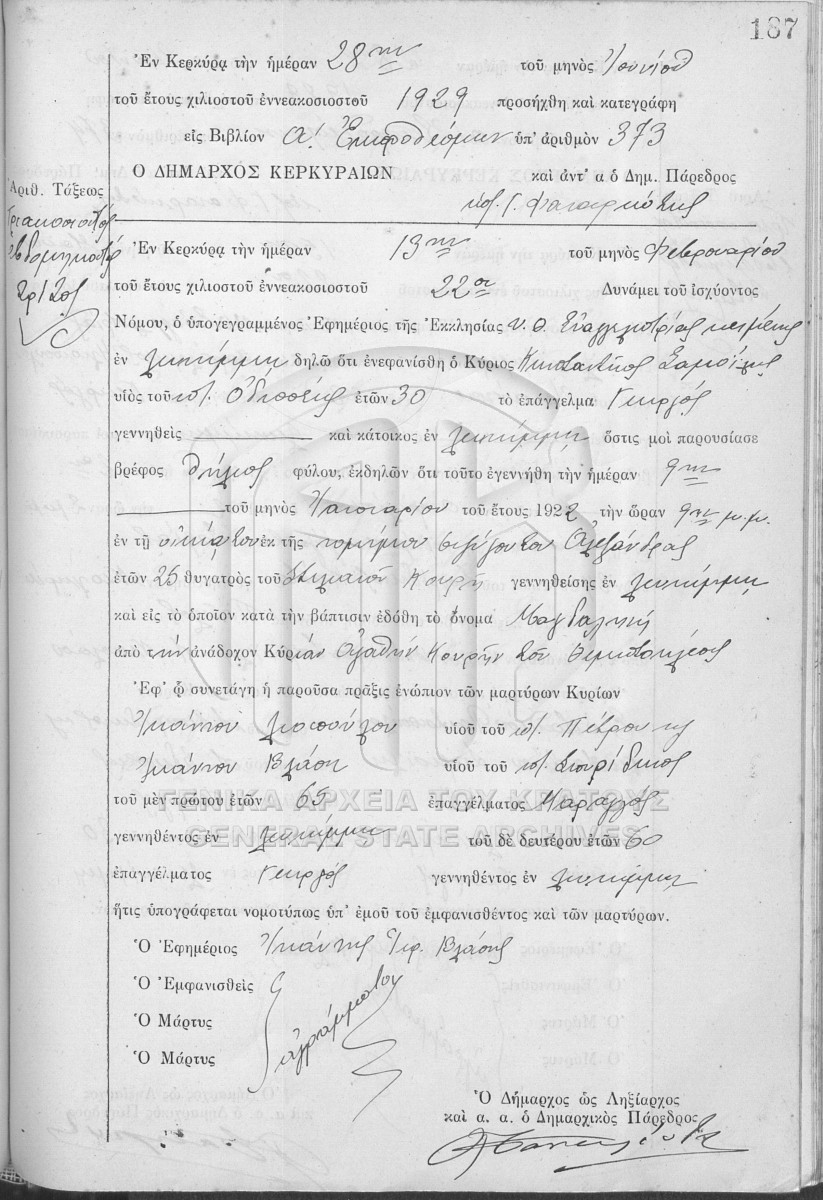 187
Ἐν Κερκύρᾳ τὴν ἡμέραν 28ην τοῦ μηνὸς Ἰουνίου
τοῦ ἔτους χιλιοστοῦ ἐννεακοσιοστοῦ 1929 προσήχθη καὶ κατεγράφη
εἰς Βιβλίον Α! Ἐκπροθέσμων ὑπ' ἀριθμὸν 373
Ο ΔΗΜΑΡΧΟΣ ΚΕΡΚΥΡΑΙΩΝ καὶ ἀντ' α ὁ Δημ. Πάρεδρος
Ἀριθ. Τάξεως
Τριακοσιοστὸς
ἑβδομηκοστὸς
τρίτος
Ἐν Κερκύρᾳ τὴν ἡμέραν 13ην τοῦ μηνὸς Φεβρουαρίου
τοῦ ἔτους χιλιοστοῦ ἐννεακοσιοστοῦ 22ου Δυνάμει τοῦ ἰσχύοντος
Νόμου, ὁ ὑπογεγραμμένος Ἐφημέριος τῆς Ἐκκλησίας Υ. Θ. Εὐαγγελιστρίας
ἐν Λευκίμμῃ δηλῶ ὅτι ἐνεφανίσθη ὁ Κύριος Κωνσταντῖνος
υἱὸς τοῦ ποτ. Ὀδυσσέως ἐτῶν 30 τὸ ἐπάγγελμα Γεωργός
γεννηθεὶς καὶ κάτοικος ἐν Λευκίμμῃ ὅστις μοὶ παρουσίασε
βρέφος θήλεος φύλου, ἐκδηλῶν ὅτι τοῦτο ἐγεννήθη τὴν ἡμέραν 9ην
τοῦ μηνὸς Ἰανουαρίου τοῦ ἔτους 1922 τὴν ὥραν 9ην μ.μ.
ἐν τῇ οἰκίᾳ του ἐκ τῆς νομίμου συζύγου του Ἀλεξάνδρας
ἐτῶν 25 θυγατρὸς τοῦ Στυλιανοῦ Κουρῆ γεννηθείσης ἐν Λευκίμμῃ
καὶ εἰς τὸ ὁποῖον κατὰ τὴν βάπτισιν ἐδόθη τὸ ὄνομα Μαγδαληνή
ἀπὸ τὴν ἀνάδοχον Κυρίαν Ἀγαθὴν Κουρῆ τοῦ Θεμιστοκλέους
Ἐφ' ᾧ συνετάγη ἡ παροῦσα πρᾶξις ἐνώπιον τῶν μαρτύρων Κυρίων
Ἰωάννου υἱοῦ τοῦ ποτ. Πέτρου
Ἰωάννου Βλάση υἱοῦ τοῦ ποτ. Σπυρίδωνος
τοῦ μὲν πρώτου ἐτῶν 65 ἐπαγγέλματος
γεννηθέντος ἐν Λευκίμμῃ τοῦ δὲ δευτέρου ἐτῶν 60
ἐπαγγέλματος Γεωργός γεννηθέντος ἐν Λευκίμμῃ
ἥτις ὑπογράφεται νομοτύπως ὑπ' ἐμοῦ τοῦ ἐμφανισθέντος καὶ τῶν μαρτύρων.
Ὁ Ἐφημέριος Ἰωάννης Ἱερ. Βλάσης
Ὁ Ἐμφανισθεὶς
Ὁ Μάρτυς ἀγράμματοι
Ὁ Μάρτυς
Ὁ Δήμαρχος ὡς Ληξίαρχος
καὶ α. α. ὁ Δημαρχικὸς Πάρεδρος
ΓΕΝΙΚΑ ΑΡΧΕΙΑ ΤΟΥ ΚΡΑΤΟΥΣ
GENERAL STATE ARCHIVES